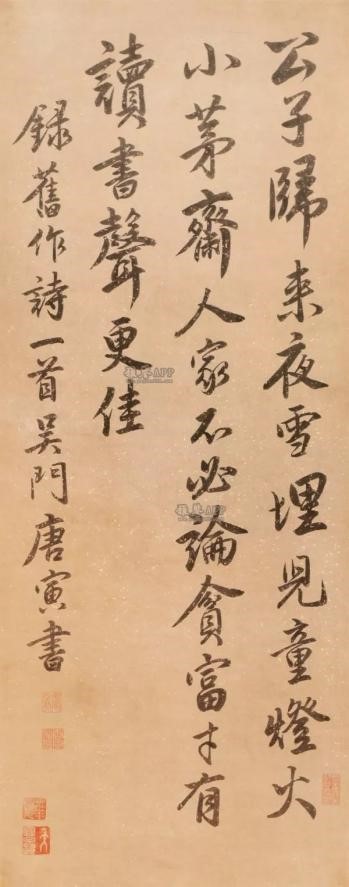 公子歸来夜雪埋兒童燈火
小茅齋人家不必論貧富才有
讀書聲更佳
録舊作詩一首吳門唐寅書